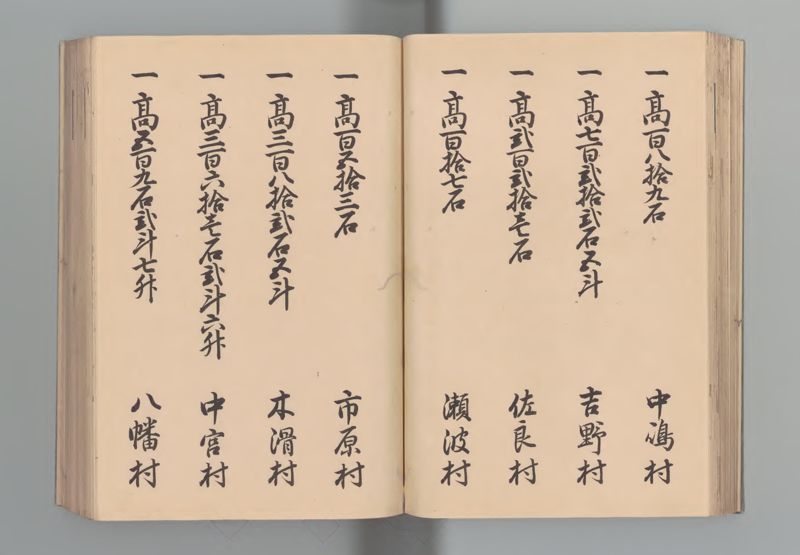 一高百八拾九石 中嶋村
一高七百弐拾弐石五斗 吉野村
一高弐百弐拾壱石 佐良村
一高百拾七石 瀬波村
一高百五拾三石 市原村
一高三百八拾弐石五斗 木滑村
一高三百六拾壱石弐斗六升 中宮村
一高五百九石弐斗七升 八幡村